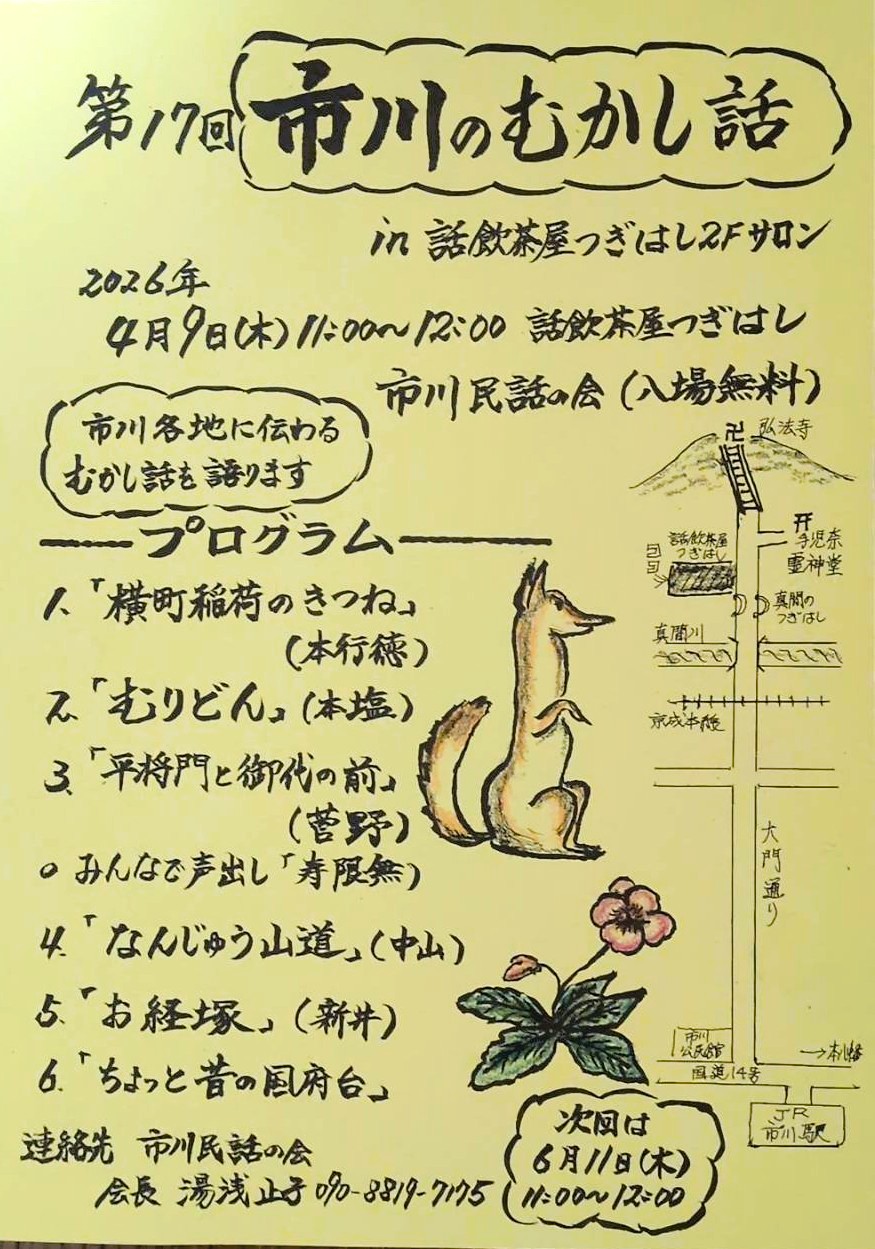 第17回 市川のむかし話
in 話飲茶屋つぎはし2Fサロン
2026年
4月9日(木)11:00〜12:00 話飲茶屋つぎはし
市川民話の会(入場無料)
市川各地に伝わる
むかし話を語ります
プログラム
1.「横町稲荷のきつね」
(本行徳)
2.「むりどん」(本塩)
3.「平将門と御代の前」
(菅野)
○みんなで声出し「寿限無」
4.「なんじゅう山道」(中山)
5.「お経塚」(新井)
6.「ちょっと昔の国府台」
連絡先 市川民話の会
会長 湯浅止子 090-8819-7175
次回は
6月11日(木)
11:00〜12:00
卍 弘法寺
手児奈
霊神堂
話飲茶屋
つぎはし
真間の
つぎはし
真間川
京成本線
大門通り
市川
公民館
→本八幡
国道14号
JR
市川駅